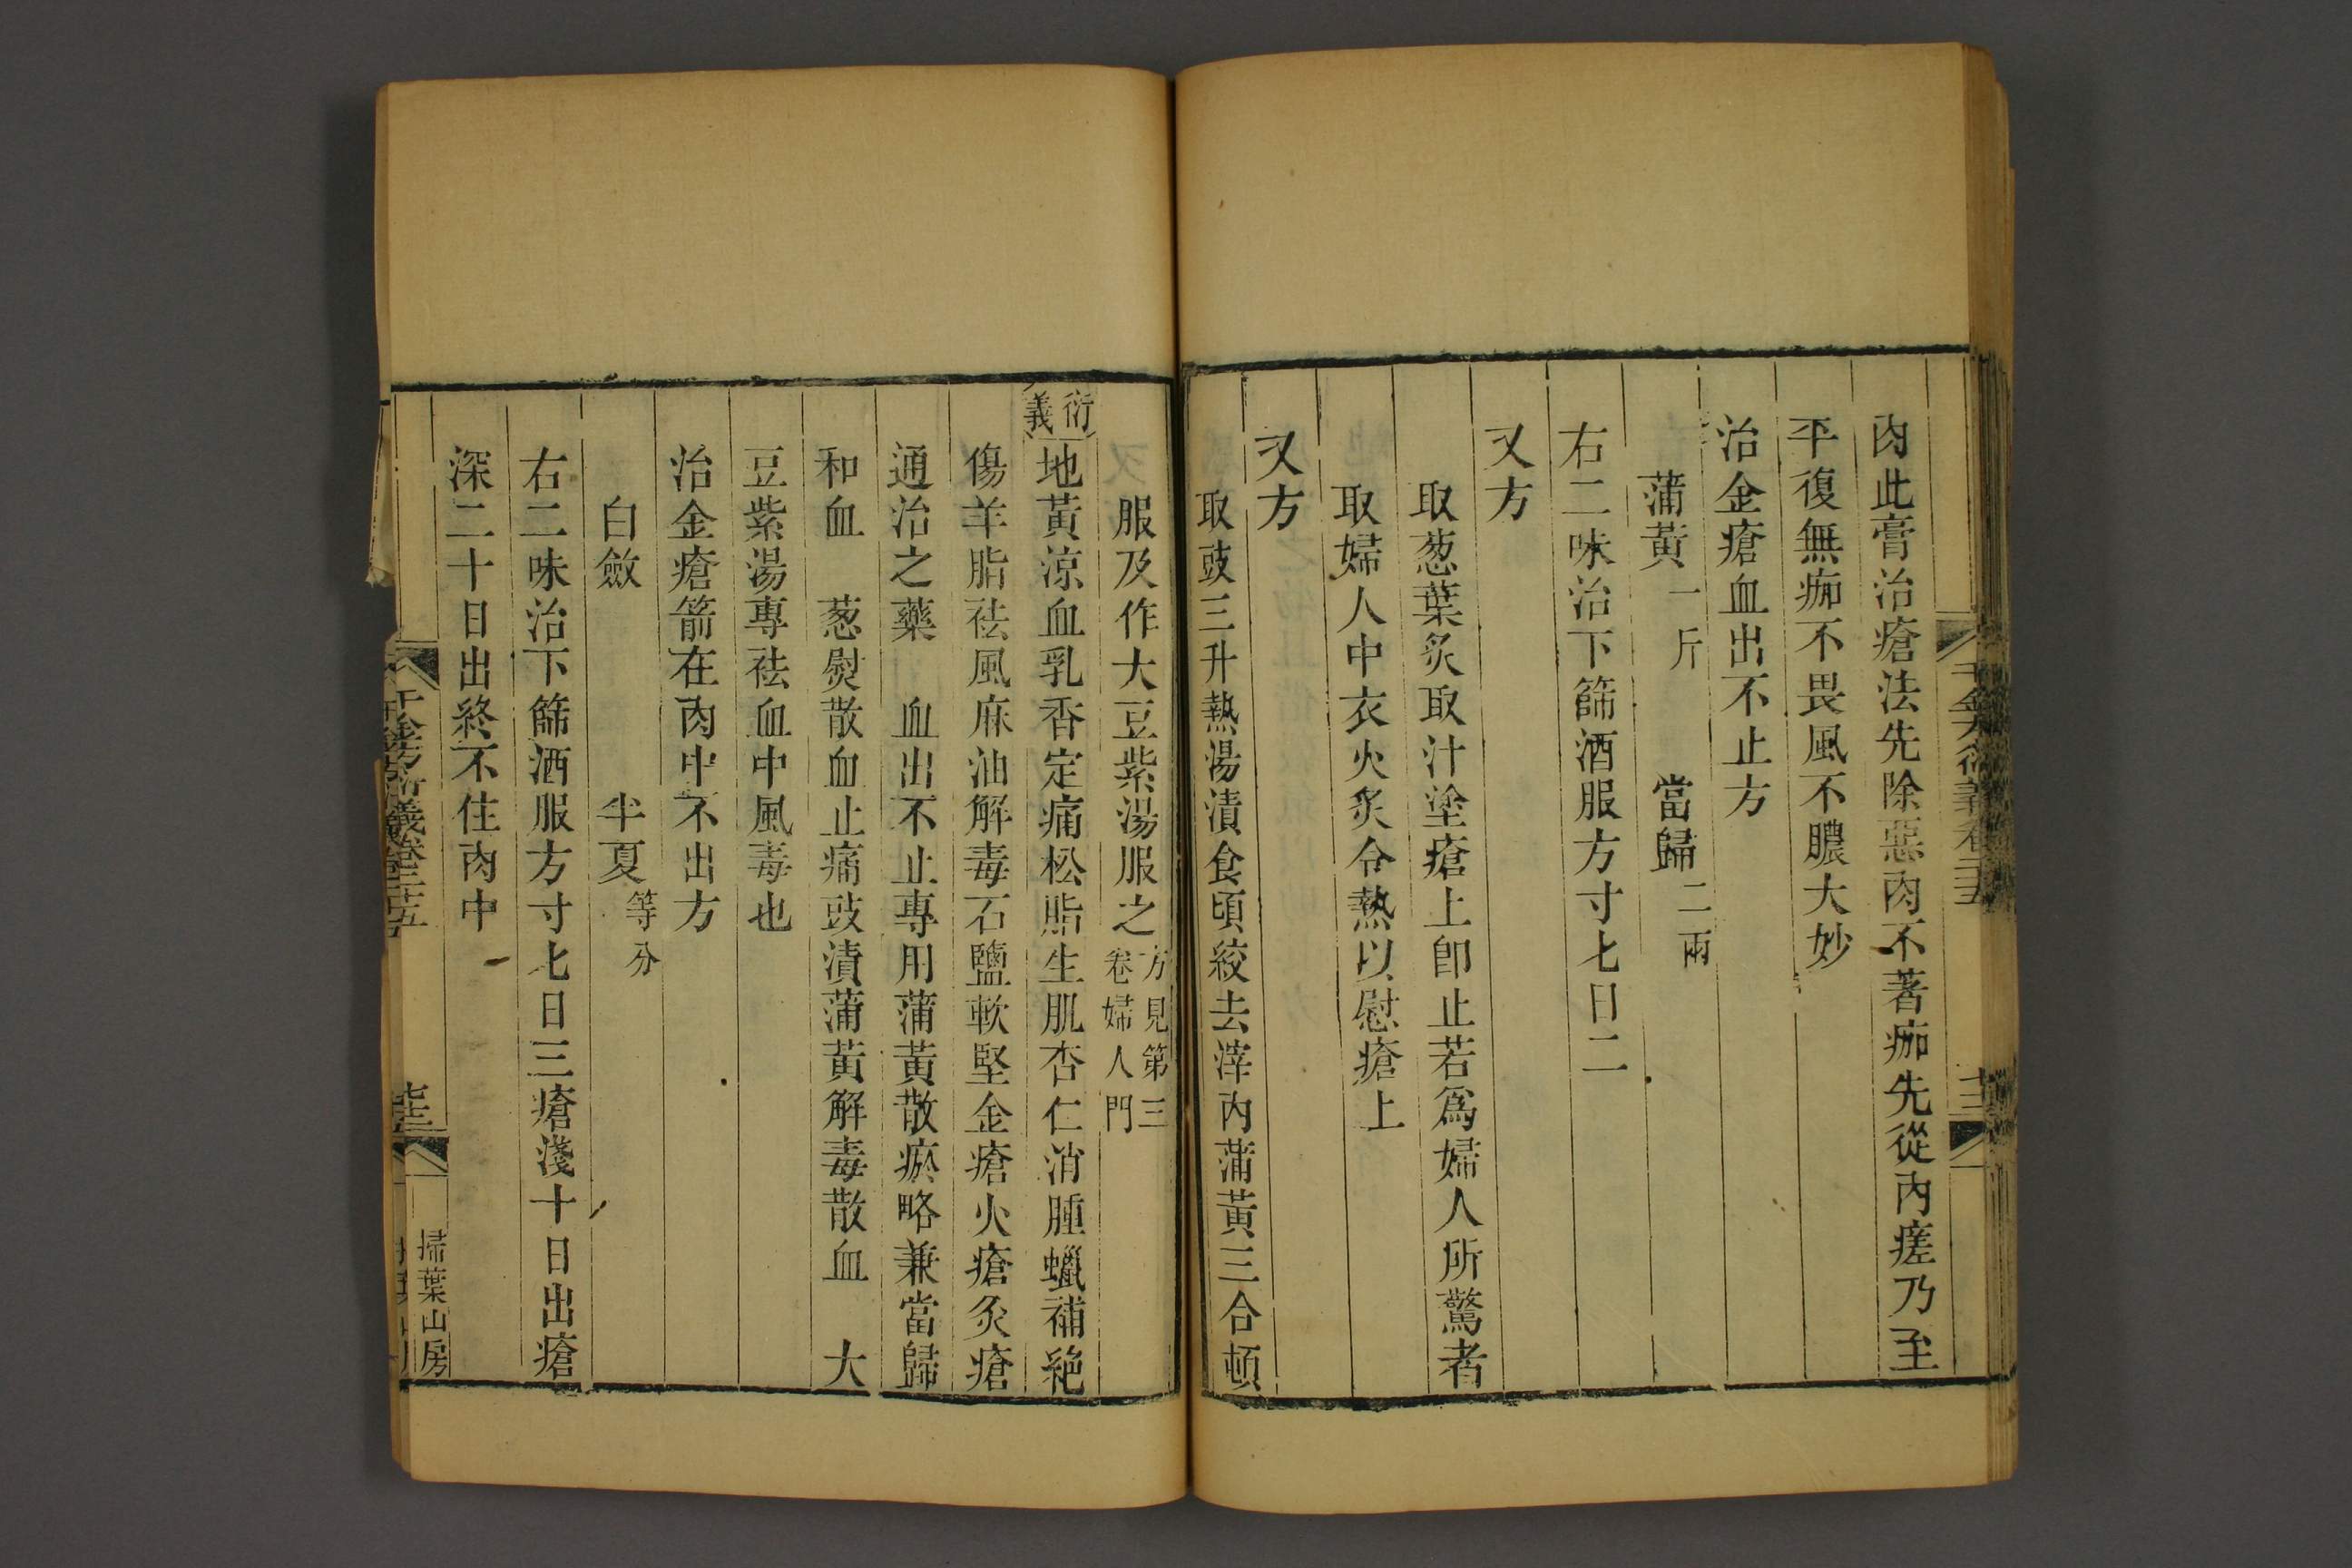 肉此膏治瘡法先除惡肉不著痂先從內瘥乃至
平復無痂不畏風不膿大妙
治金瘡血出不止方
蒲黃一斤　當歸二兩
右二味治下篩酒服方寸匕日二
又方
取葱葉炙取汁塗瘡上卽止若爲婦人所驚者
取婦人中衣火炙令熱以慰瘡上
又方
取豉三升熱湯漬食頃絞去滓內蒲黃三合頓
服及作大豆紫湯服之方見第三
卷婦人門
衍義
地黃涼血乳香定痛松脂生肌杏仁消腫蠟補絶
傷羊脂祛風麻油解毒石鹽軟堅金瘡火瘡灸瘡
通治之藥　血出不止專用蒲黃散瘀略兼當歸
和血　葱熨散血止痛豉漬蒲黃解毒散血　大
豆紫湯專祛血中風毒也
治金瘡箭在肉中不出方
白斂　半夏等分
右二味治下篩酒服方寸匕日三瘡淺十日出瘡
深二十日出終不住肉中
千金方衍義卷二十五
掃葉山房